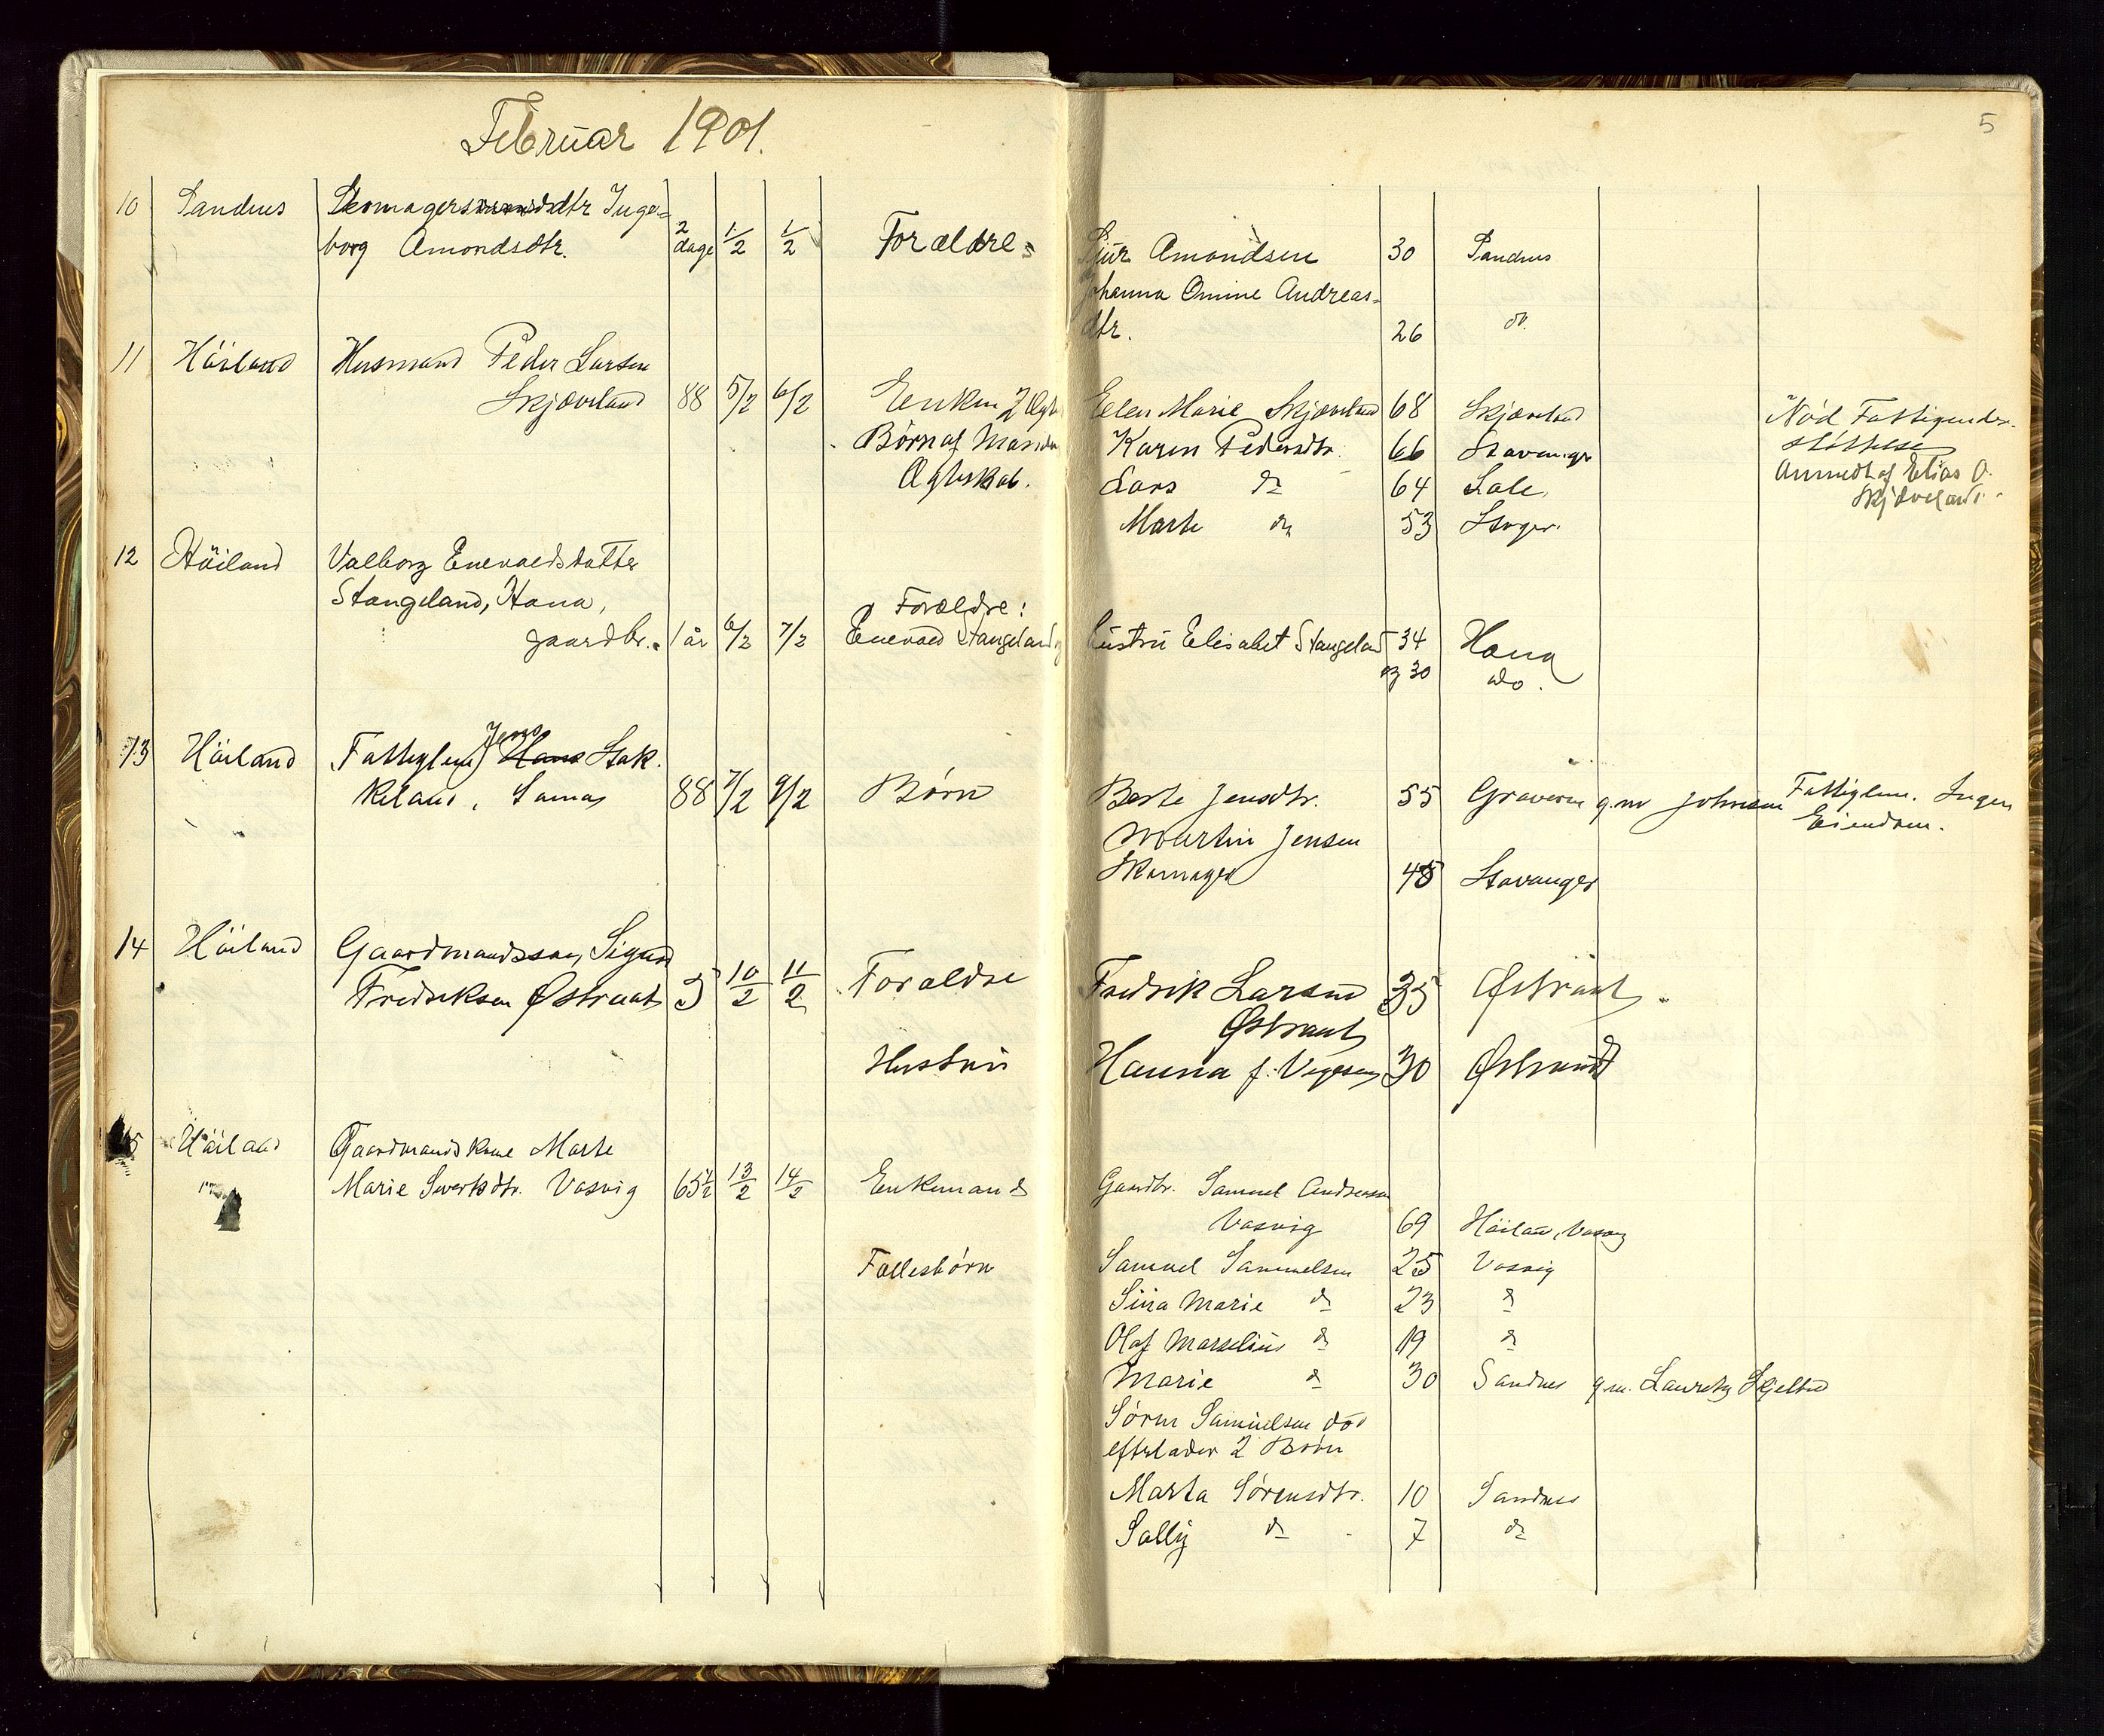 Februar 1901.
5
10 Sandnes Skomagersdtr Inge=
borg Amondsdtr. 2 dage 1/2 1/2 Forældre: Sjur Amondsen 30 Sandnes
Johanna Omine Andreas=
dtr. 26 do
11 Höiland Husmand Peder Larsen
Skjæveland 88 5/2 6/2 Enken 2 Ægt Elen Marie Skjæveland 68 Skjæveland Nöd Fattigunder-
Börn af Mandens Karen Pedersdtr. 66 Stavanger støttelse
Ægteskab. Lars do 64 Lale, Anmedt af Elias O.
Skjæveland.
Marte do 53 Stvgr.
12 Höiland Valborg Enevaldsdatter
Stangeland, Hana,
gaardbr. 1 år 6/2 7/2 Forældre:
Enevald Stangeland og Hustru Elisabet Stangeland 34 Hana
og 30 do.
13 Höiland Fattiglem Jens Hans Stok-
keland, Somas 88 7/2 9/2 Børn Berte Jensdtr. 55 Graveren g.m Johnsen Fattiglem. Ingen
Eiendom.
Martin Jensen
Skomager 48 Stavanger
14 Höiland Gaardmandssøn Sigurd
Fredriksen Østraat 3 10/2 11/2 Forældre Fredrik Larsen 35 Østraat
Østraat
Hustru Hanna f. Vigesen 30 Østraat
15 Höiland Gaardmandskone Marte
Marie Sivertsdtr. Vasvig 65 1/2 13/2 14/2 Enkemand Gaardbr. Samuel Andreasen
Vasvig 69 Höiland, Vasvig
Fællesbörn Samuel Samuelsen 25 Vasvig
Sina Marie do 23 do
Olaf Marselius do 19 do
Marie do 30 Sandnes g.m. Lauretz Skjelbred
Sören Samuelsen död
efterlader 2 Börn
Marta Sörensdtr. 10 Sandnes
Sally do 7 do